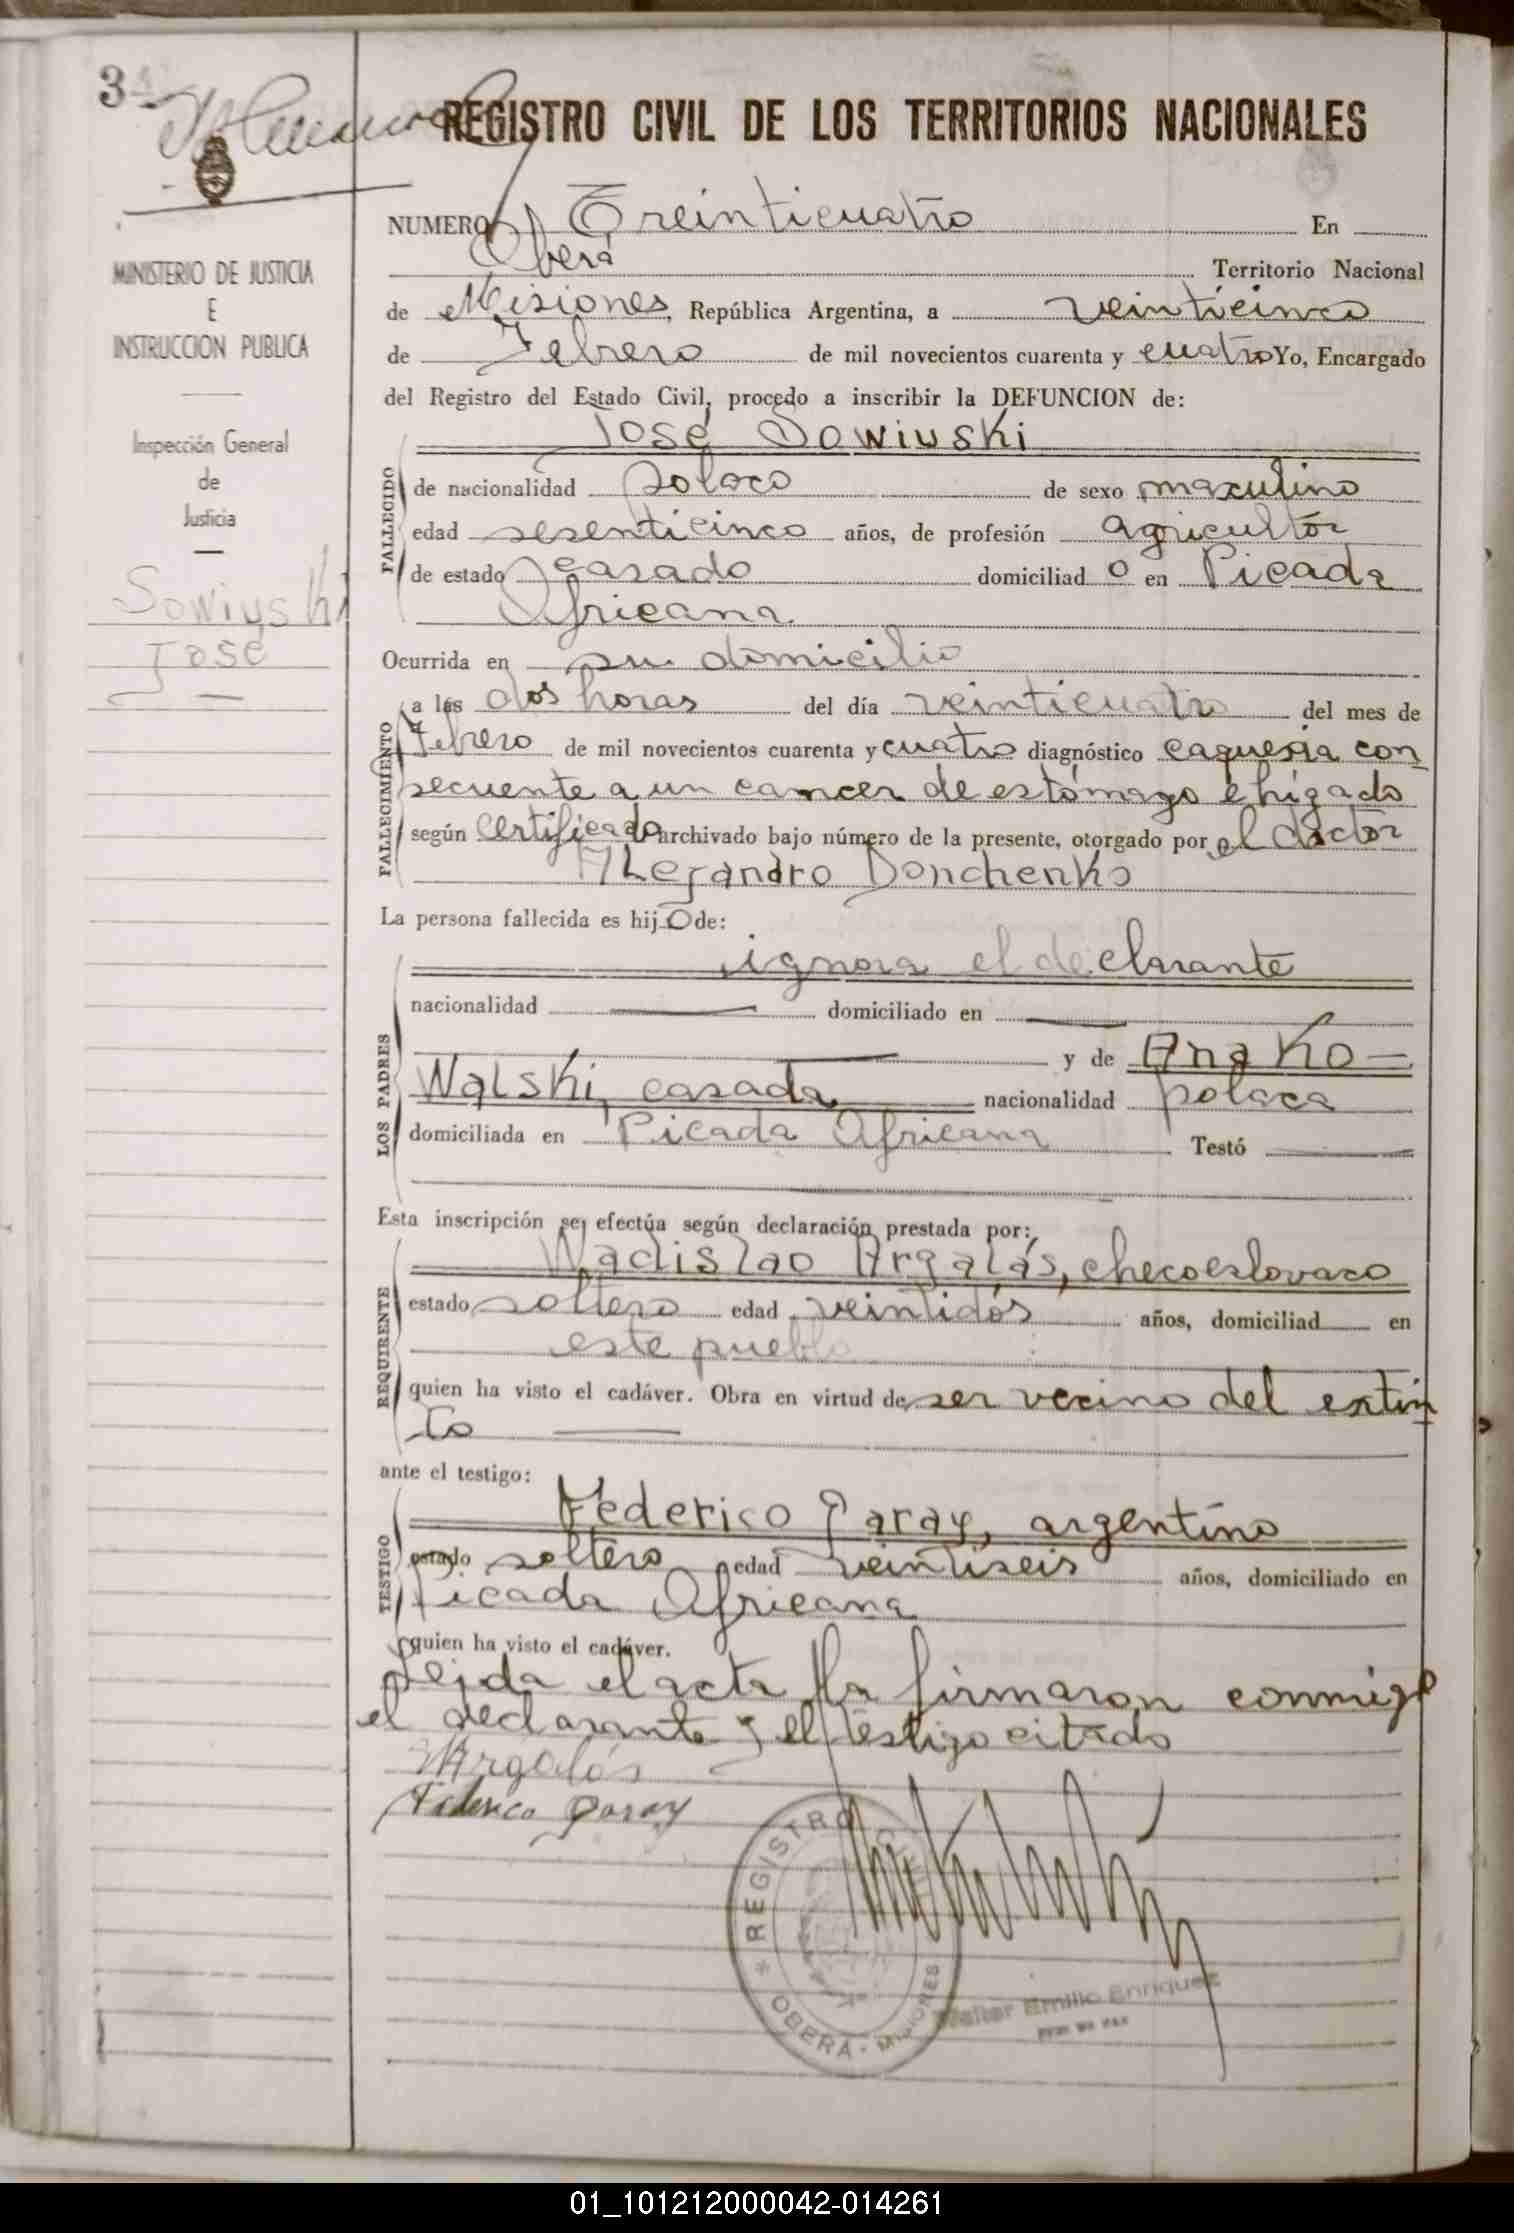 3
REGISTRO CIVIL DE LOS TERRITORIOS NACIONALES
MINISTERIO DE JUSTICIA
E
INSTRUCCION PUBLICA
Inspección General
de
Justicia
Sowiuski
José
NUMERO Treinticuatro En
Oberá Territorio Nacional
de Misiones, República Argentina, a veinticinco
de Febrero de mil novecientos cuarenta y cuatro Yo, Encargado
del Registro del Estado Civil, procedo a inscribir la DEFUNCION de:
José Sowiuski
FALLECIDO
de nacionalidad polaco de sexo masculino
edad sesenticinco años, de profesión agricultor
de estado casado domiciliad o en Picada
Africana
Ocurrida en su domicilio
FALLECIMIENTO
a las dos horas del día veinticuatro del mes de
Febrero de mil novecientos cuarenta y cuatro diagnóstico caquesia con
secuente a un cancer de estómago é higado
según certificado archivado bajo número de la presente, otorgado por el doctor
Alejandro Donchenko
La persona fallecida es hij o de:
LOS PADRES
ignora el declarante
nacionalidad domiciliado en
y de Ana Ko-
walski, casada nacionalidad polaca
domiciliada en Picada Africana Testó
Esta inscripción se efectúa según declaración prestada por:
REQUIRENTE
Wadislao Argalás, checoeslovaco
estado soltero edad veintidós años, domiciliad en
este pueblo
quien ha visto el cadáver. Obra en virtud de ser vecino del extin
to
ante el testigo:
TESTIGO
Federico Paray, argentino
estado soltero edad veintiseis años, domiciliado en
Picada Africana
quien ha visto el cadáver.
Leida el acta la firmaron conmigo
el declarante y el testigo citado
Argalás
Federico Paray
REGISTRO CIVIL
OBERÁ - MISIONES
Walter Emilio Enriquez
01_101212000042-014261